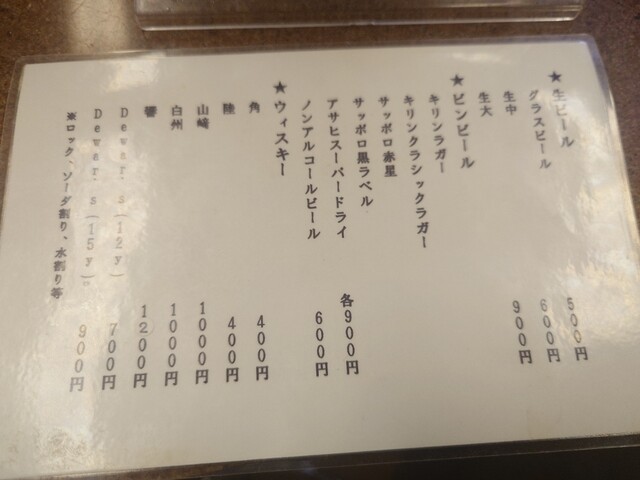 ★生ビール
グラスビール 500円
生中 600円
生大 900円
★ビンビール
キリンラガー
キリンクラシックラガー
サッポロ赤星
サッポロ黒ラベル
アサヒスーパードライ 各900円
ノンアルコールビール 600円
★ウィスキー
角 400円
陸 400円
山崎 1000円
白州 1000円
響 1200円
Dewar's(12y) 700円
Dewar's(15y) 900円
※ロック、ソーダ割り、水割り等